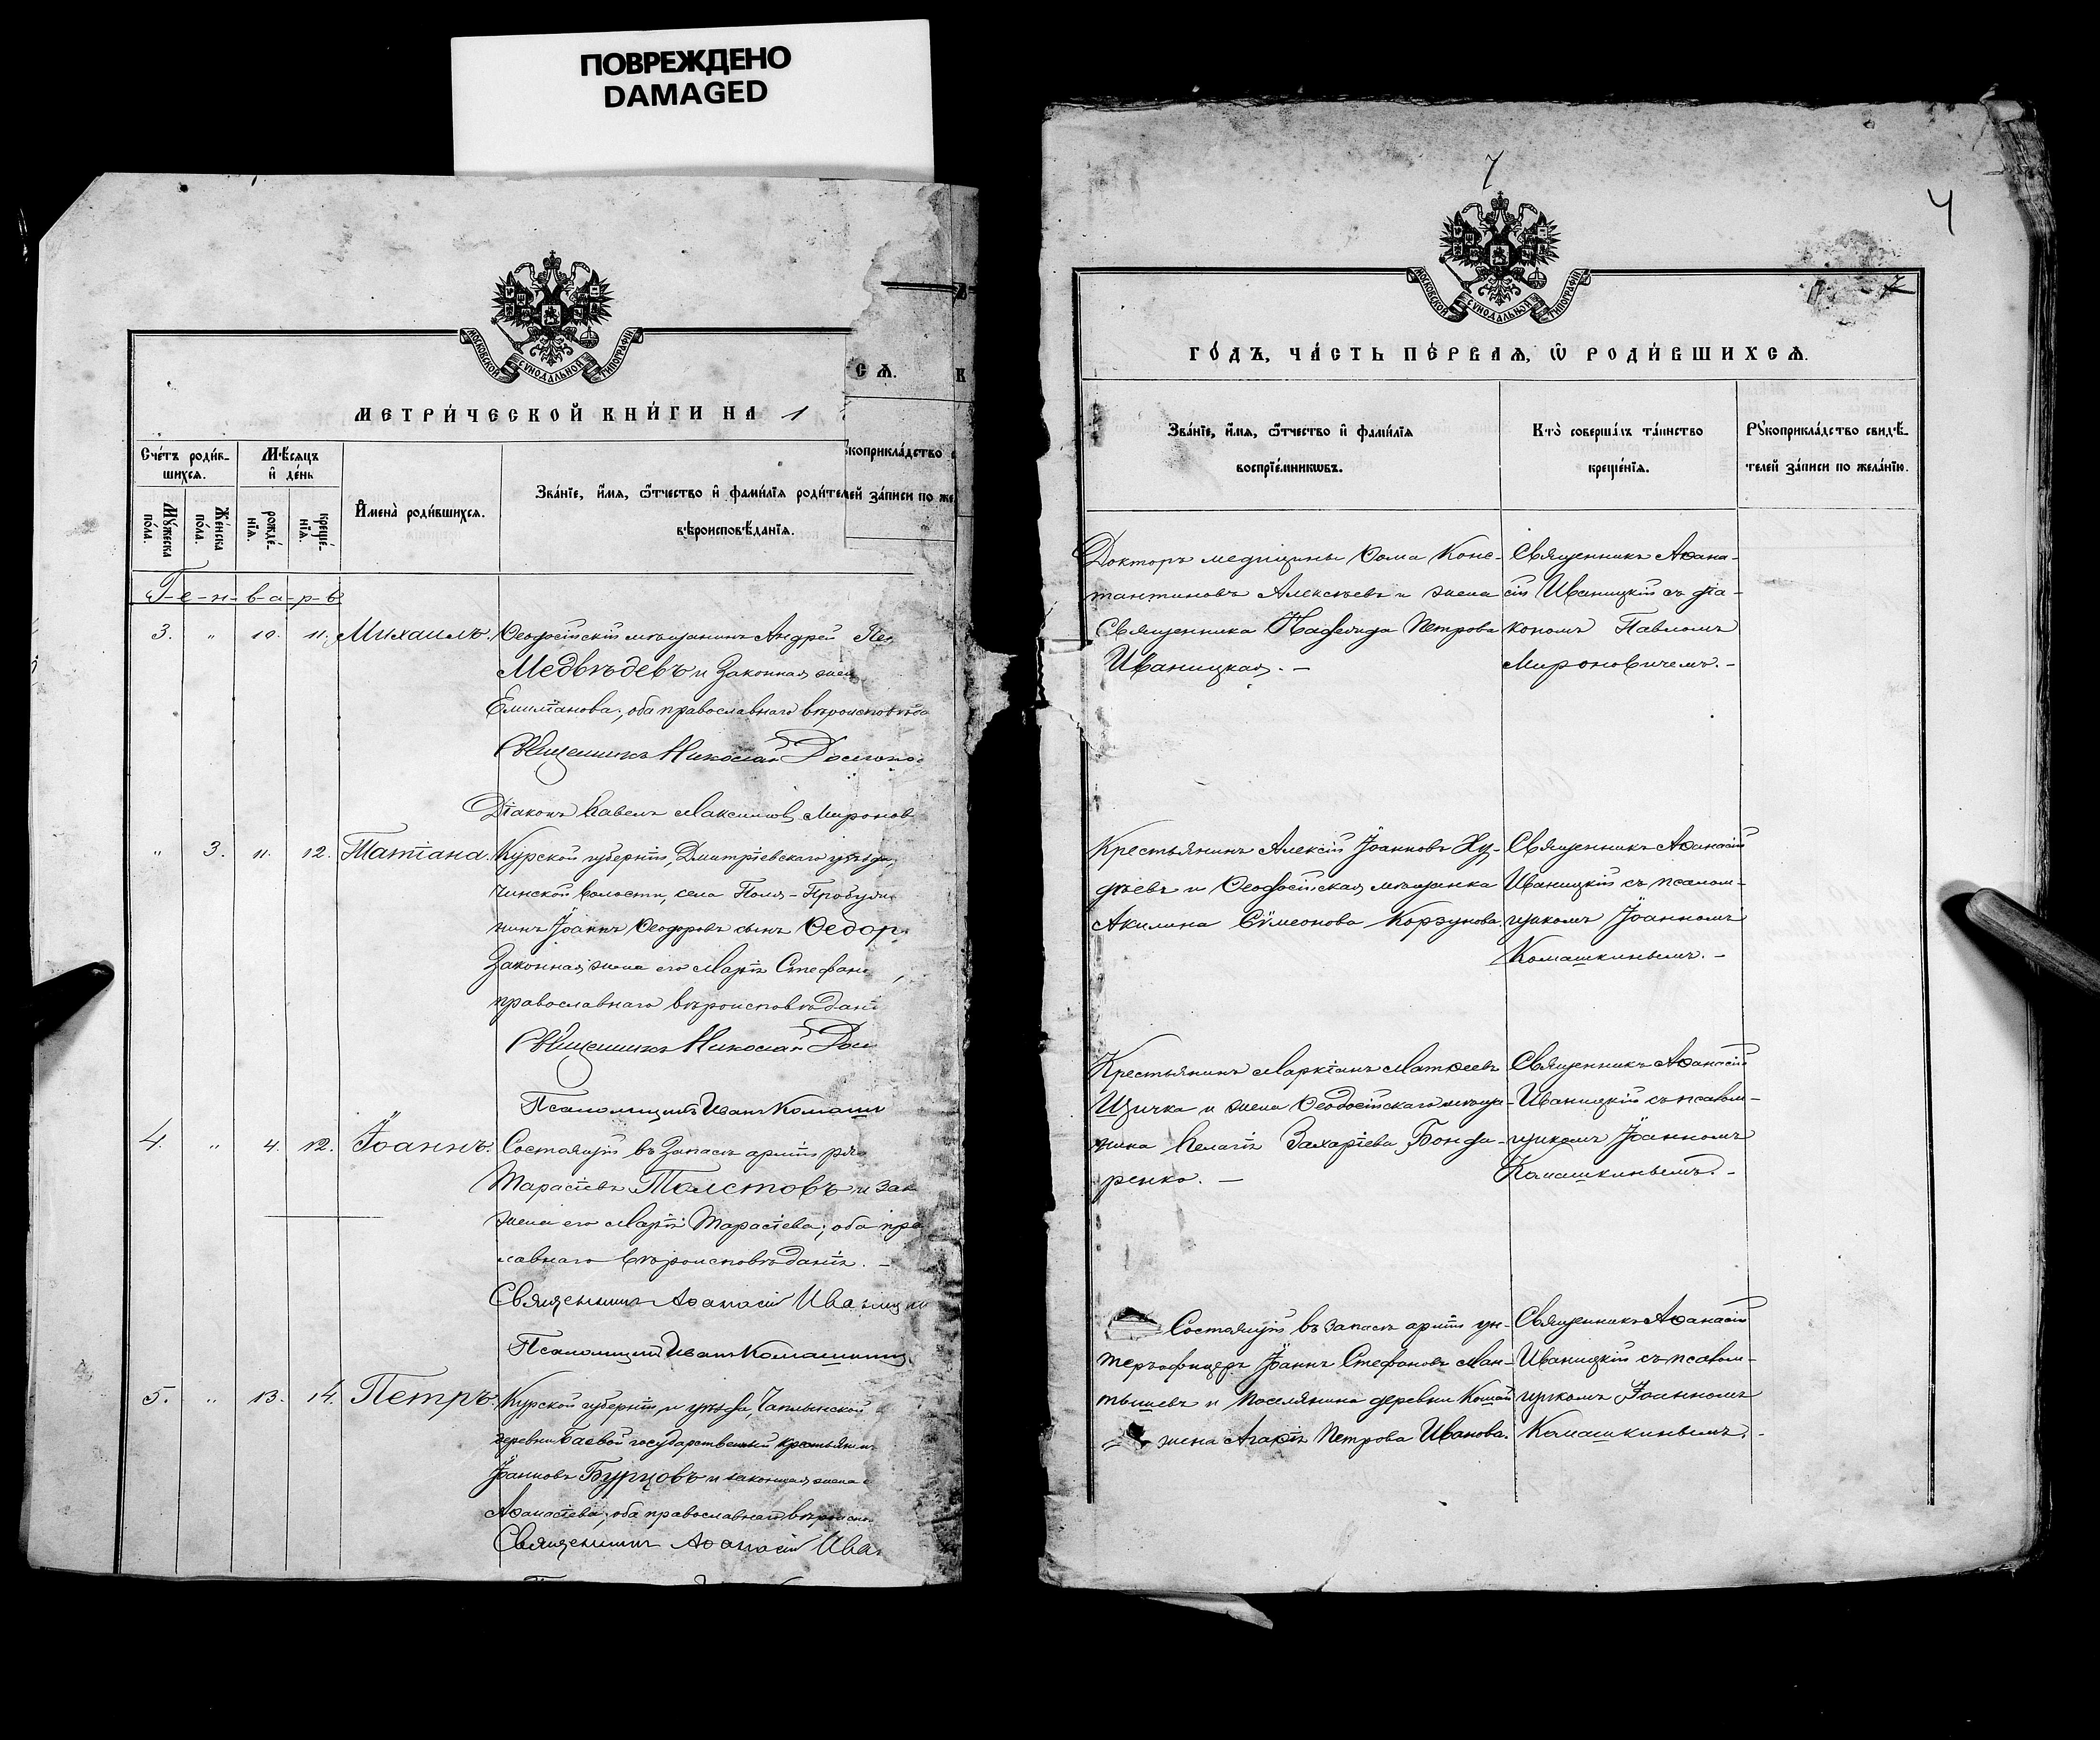 ПОВРЕЖДЕНО
DAMAGED
МОСКОВСКОЙ СУНОДАЛЬНОЙ ТИПОГРАФІИ
МЕТРИ́ЧЕСКОЙ КНИ́ГИ НА 1
Сче́тъ роди́в-
шихся.
Мѣ́сяцъ
и҆ де́нь
Мꙋ́жеска
по́ла.
Же́нска
по́ла.
рожде́-
нїя.
креще́-
нїя.
И҆мена̀ роди́вшихся.
Зва́нїе, и҆́мя, ѻ҆́тчество и҆ фами́лїя роди́телей
вѣроисповѣ́данїя.
СѦ.
коприкла́дство
за́писи по же
К
Г-е-н-в-а-р-ь
3. " 10. 11. Михаилъ. Ѳеодосійскій мѣщанинъ Андрей
Медвѣдевъ и Законная жена
Емиліанова, оба православнаго вѣроисповѣда
Священникъ Николай
Діаконъ Павелъ Максимовъ Миронов
" 3. 11. 12. Татіана. Курской губерніи, Дмитріевскаго уѣзда,
чинской волости, села Поля-
нинъ Іоаннъ Ѳеодоровъ сынъ Ѳедор
Законная жена его Марія Стефан
православнаго вѣроисповѣдані
Священникъ Николай
Псаломщикъ Иванъ Комаш
4. " 4. 12. Іоаннъ. Состоящій въ Запасѣ арміи ря
Тарасіевъ Толстовъ и зак
жена его Марія Тарасіева; оба пра
лавнаго вѣроисповѣданія. –
Священникъ Аѳанасій Иваницкі
Псаломщикъ Иванъ Комашкинъ
5. " 13. 14. Петръ. Курской губерніи, и уѣзда,
деревни Баевой государственный крестьянин
Іоанновъ Бурцовъ и законная жена
Аѳанасіева; оба православнаго вѣроиспо
Священникъ Аѳанасій Ива
7
4
7
МОСКОВСКОЙ СУНОДАЛЬНОЙ ТИПОГРАФІИ
ГО́ДЪ, ЧА́СТЬ ПЕ́РВАѦ, Ѽ РОДИ́ВШИХСѦ.
Зва́нїе, и҆́мя, ѻ҆́тчество и҆ фами́лїя
воспрїе́мникѡвъ.
Кто̀ соверша́лъ та́инство
креще́нїя.
Рꙋкоприкла́дство свидѣ́-
телей за́писи по жела́нїю.
Докторъ медицины Ѳома Конс-
тантиновъ Алексѣевъ и жена
Священника Петрова
Иваницкая. –
Священникъ Аѳана-
сій Иваницкій съ діа-
кономъ Павломъ
Мироновичемъ. –
Крестьянинъ Алексій Іоанновъ Ху-
дѣевъ и Ѳеодосійская мѣщанка
Акилина Сѵмеонова Корзунова.
Священникъ Аѳанасій
Иваницкій съ псалом-
щикомъ Іоанномъ
Комашкинымъ. –
Крестьянинъ Маркіанъ Матѳеевъ
Щичка и жена Ѳеодосійскаго мѣща-
нина Пелагія Захаріева Бонда-
ренко. –
Священникъ Аѳанасій
Иваницкій съ псалом-
щикомъ Іоанномъ
Комашкинымъ. –
Состоящій въ запасѣ арміи ун-
теръофицеръ Іоаннъ Стефановъ Ман-
тышевъ и поселянина деревни
жена Агафія Петрова Иванова.
Священникъ Аѳанасій
Иваницкій съ псалом-
щикомъ Іоанномъ
Комашкинымъ. –